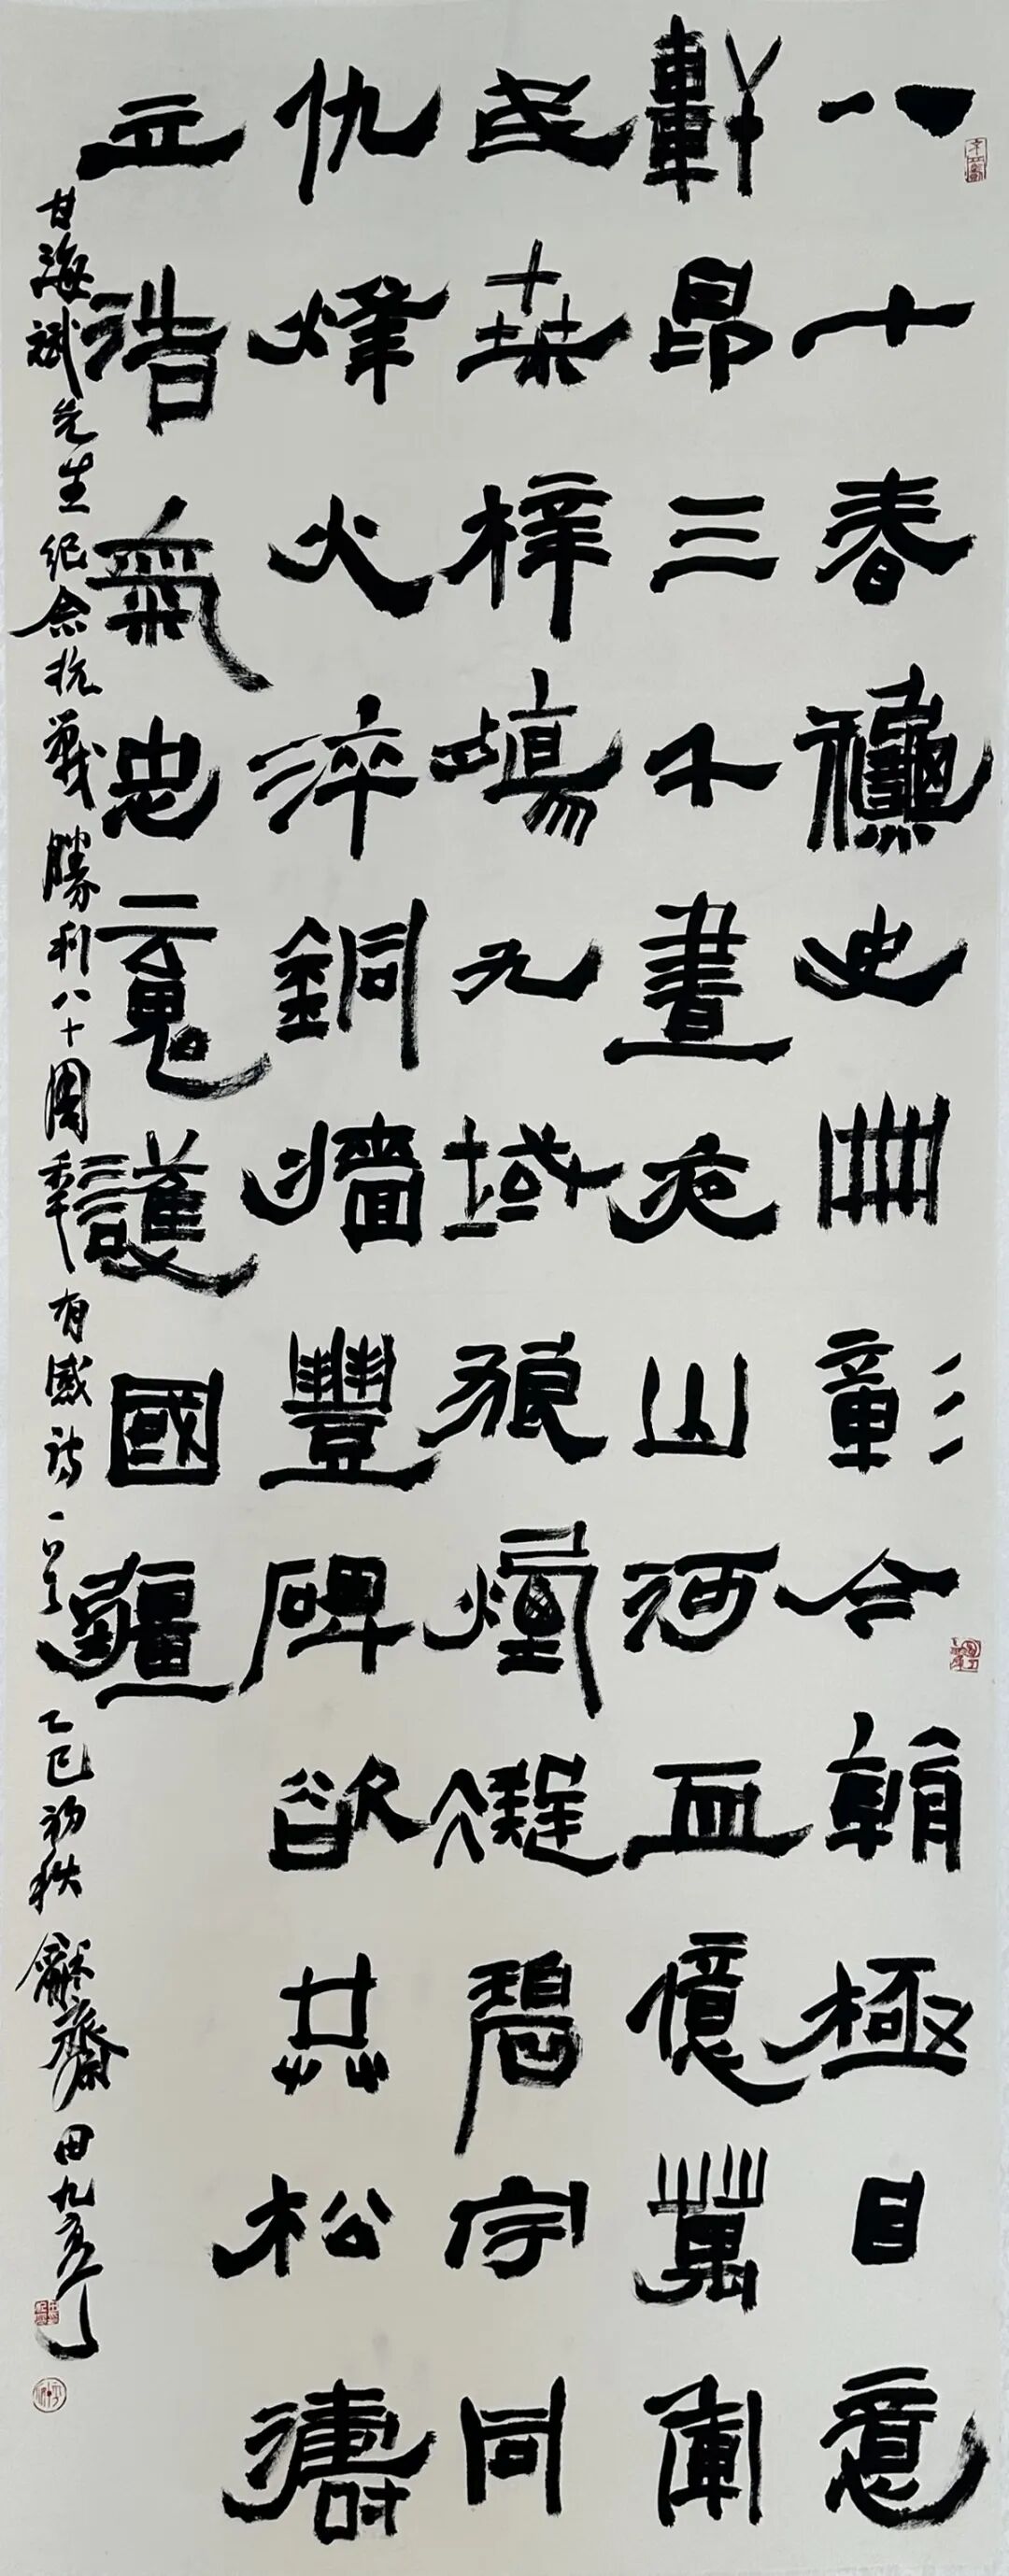 八十春穐史冊彰今朝極目意
軒昂三千晝夜山河血億萬軍
民桑梓殤九域狼煙凝碧宇同
仇烽火淬銅牆豐碑欲共松濤
立浩氣忠魂護國疆
甘海斌先生纪念抗戰勝利八十周年有感诗一首 乙巳初秋 龢齋田九